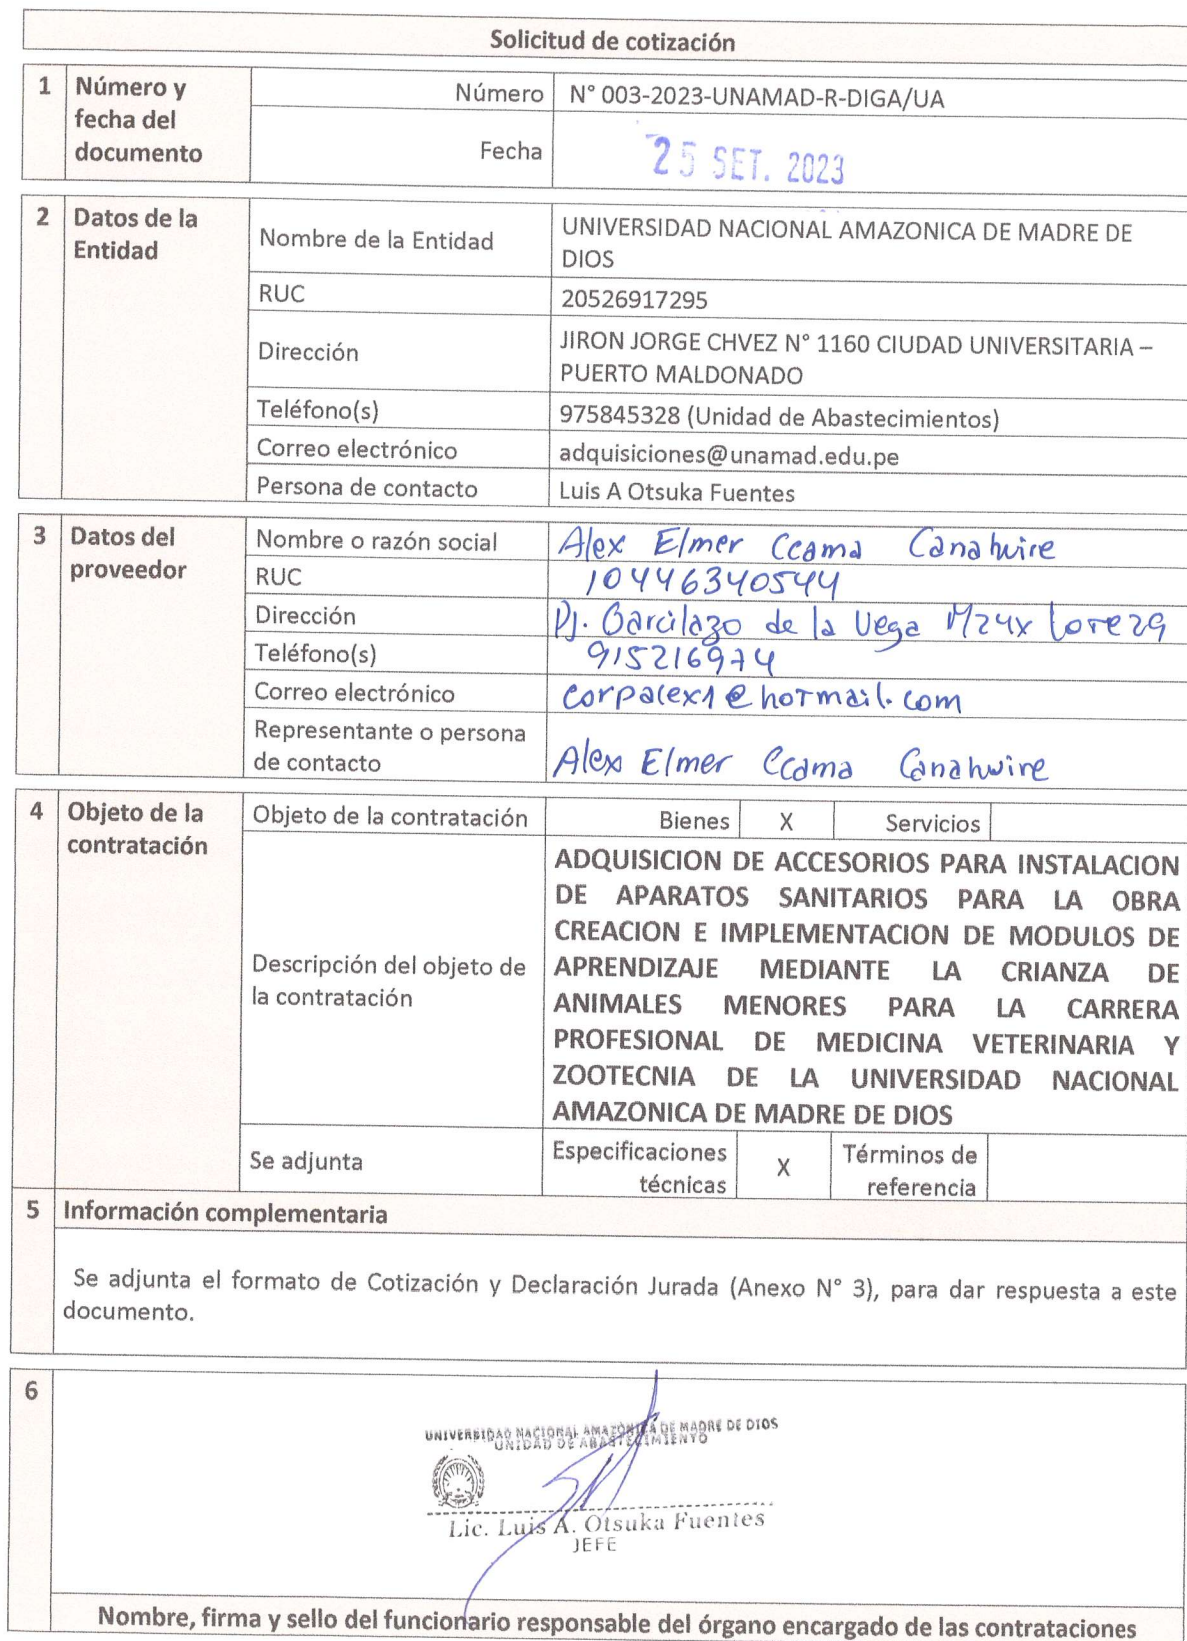 Solicitud de cotización
1 Número y fecha del documento
Número N° 003-2023-UNAMAD-R-DIGA/UA
Fecha 25 SET. 2023
2 Datos de la Entidad
Nombre de la Entidad UNIVERSIDAD NACIONAL AMAZONICA DE MADRE DE
DIOS
RUC 20526917295
Dirección JIRON JORGE CHVEZ N° 1160 CIUDAD UNIVERSITARIA –
PUERTO MALDONADO
Teléfono(s) 975845328 (Unidad de Abastecimientos)
Correo electrónico adquisiciones@unamad.edu.pe
Persona de contacto Luis A Otsuka Fuentes
3 Datos del proveedor
Nombre o razón social Alex Elmer Ccama Canahuire
RUC 10446340544
Dirección Pj. Garcilazo de la Vega Mz4x Lote 29
Teléfono(s) 915216974
Correo electrónico corpalex1@hotmail.com
Representante o persona
de contacto Alex Elmer Ccama Canahuire
4 Objeto de la contratación
Objeto de la contratación Bienes X Servicios
Descripción del objeto de
la contratación
ADQUISICION DE ACCESORIOS PARA INSTALACION
DE APARATOS SANITARIOS PARA LA OBRA
CREACION E IMPLEMENTACION DE MODULOS DE
APRENDIZAJE MEDIANTE LA CRIANZA DE
ANIMALES MENORES PARA LA CARRERA
PROFESIONAL DE MEDICINA VETERINARIA Y
ZOOTECNIA DE LA UNIVERSIDAD NACIONAL
AMAZONICA DE MADRE DE DIOS
Se adjunta Especificaciones técnicas X Términos de referencia
5 Información complementaria
Se adjunta el formato de Cotización y Declaración Jurada (Anexo N° 3), para dar respuesta a este
documento.
6
UNIVERSIDAD NACIONAL AMAZÓNICA DE MADRE DE DIOS
UNIDAD DE ABASTECIMIENTO
Lic. Luis A. Otsuka Fuentes
JEFE
Nombre, firma y sello del funcionario responsable del órgano encargado de las contrataciones